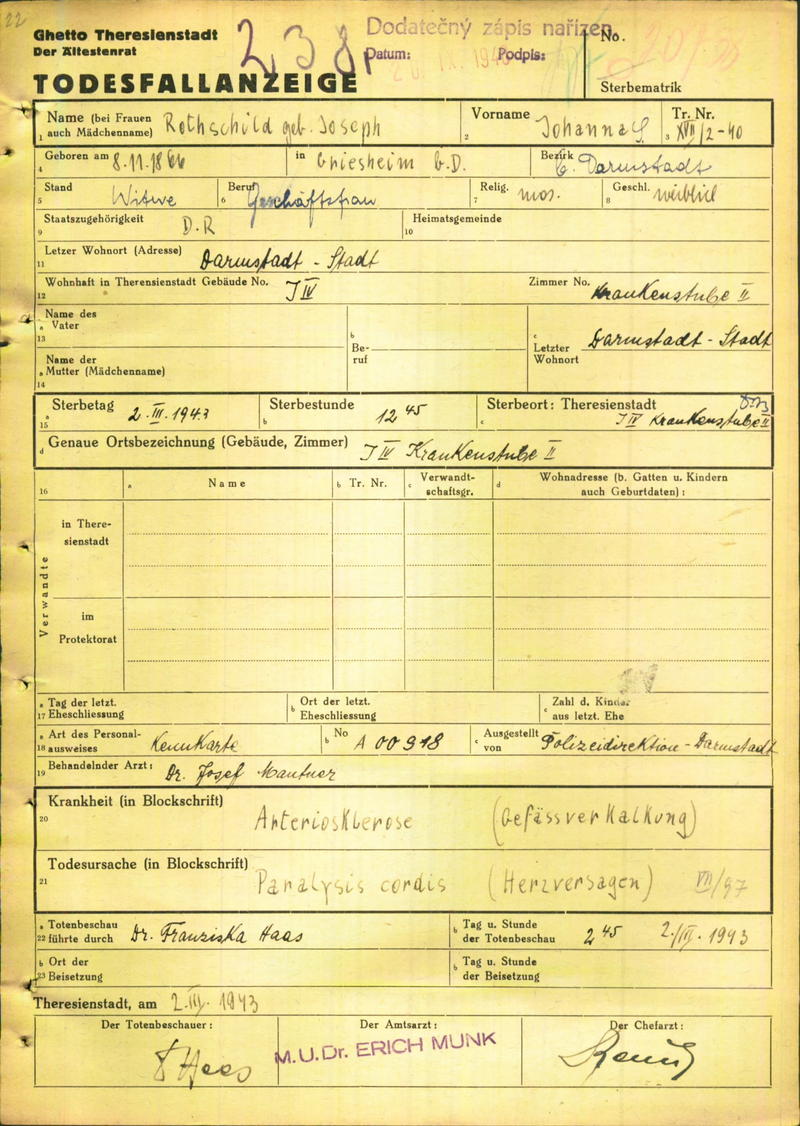 22
Ghetto Theresienstadt
Der Ältestenrat
238
Dodatečný zápis nařízen
Datum: Podpis:
No.
TODESFALLANZEIGE
Sterbematrik
Name (bei Frauen auch Mädchenname) Rothschild geb. Joseph
Vorname Johanna S.
Tr. Nr. XVII/2-40
1 2 3
Geboren am 8.11.1866 in Griesheim b.D. Bezirk b. Darmstadt
4
Stand Witwe Beruf Geschäftsfrau Relig. mos. Geschl. weiblich
5 6 7 8
Staatszugehörigkeit D.R Heimatsgemeinde
9 10
Letzer Wohnort (Adresse) Darmstadt - Stadt
11
Wohnhaft in Theresienstadt Gebäude No. J IV Zimmer No. Krankenstube II
12
Name des
a Vater
13
b
Be-
ruf
c
Letzter Wohnort Darmstadt - Stadt
Name der
a Mutter (Mädchenname)
14
a Sterbetag 2.III.1943 b Sterbestunde 12 45 c Sterbeort: Theresienstadt
15
J IV Krankenstube II
d Genaue Ortsbezeichnung (Gebäude, Zimmer) J IV Krankenstube II
16 a Name b Tr. Nr. c Verwandt-
schaftsgr. d Wohnadresse (b. Gatten u. Kindern
auch Geburtdaten) :
Verwandte
in There-
sienstadt
im
Protektorat
a Tag der letzt.
17 Eheschliessung
b Ort der letzt.
Eheschliessung
c Zahl d. Kinder
aus letzt. Ehe
a Art des Personal-
18 ausweises Kennkarte
b No A 00918
c Ausgestellt
von Polizeidirektion - Darmstadt
Behandelnder Arzt: Dr. Josef Mautner
19
Krankheit (in Blockschrift)
20 Arteriosklerose (Gefässverkalkung)
Todesursache (in Blockschrift)
21 Paralysis cordis (Herzversagen) VII/97
a Totenbeschau
22 führte durch Dr. Franziska Haas
b Tag u. Stunde
der Totenbeschau 2 45 2./III. 1943
b Ort der
23 Beisetzung
b Tag u. Stunde
der Beisetzung
Theresienstadt, am 2.III.1943
Der Totenbeschauer: Der Amtsarzt: Der Chefarzt:
F Haas
M.U.Dr. ERICH MUNK